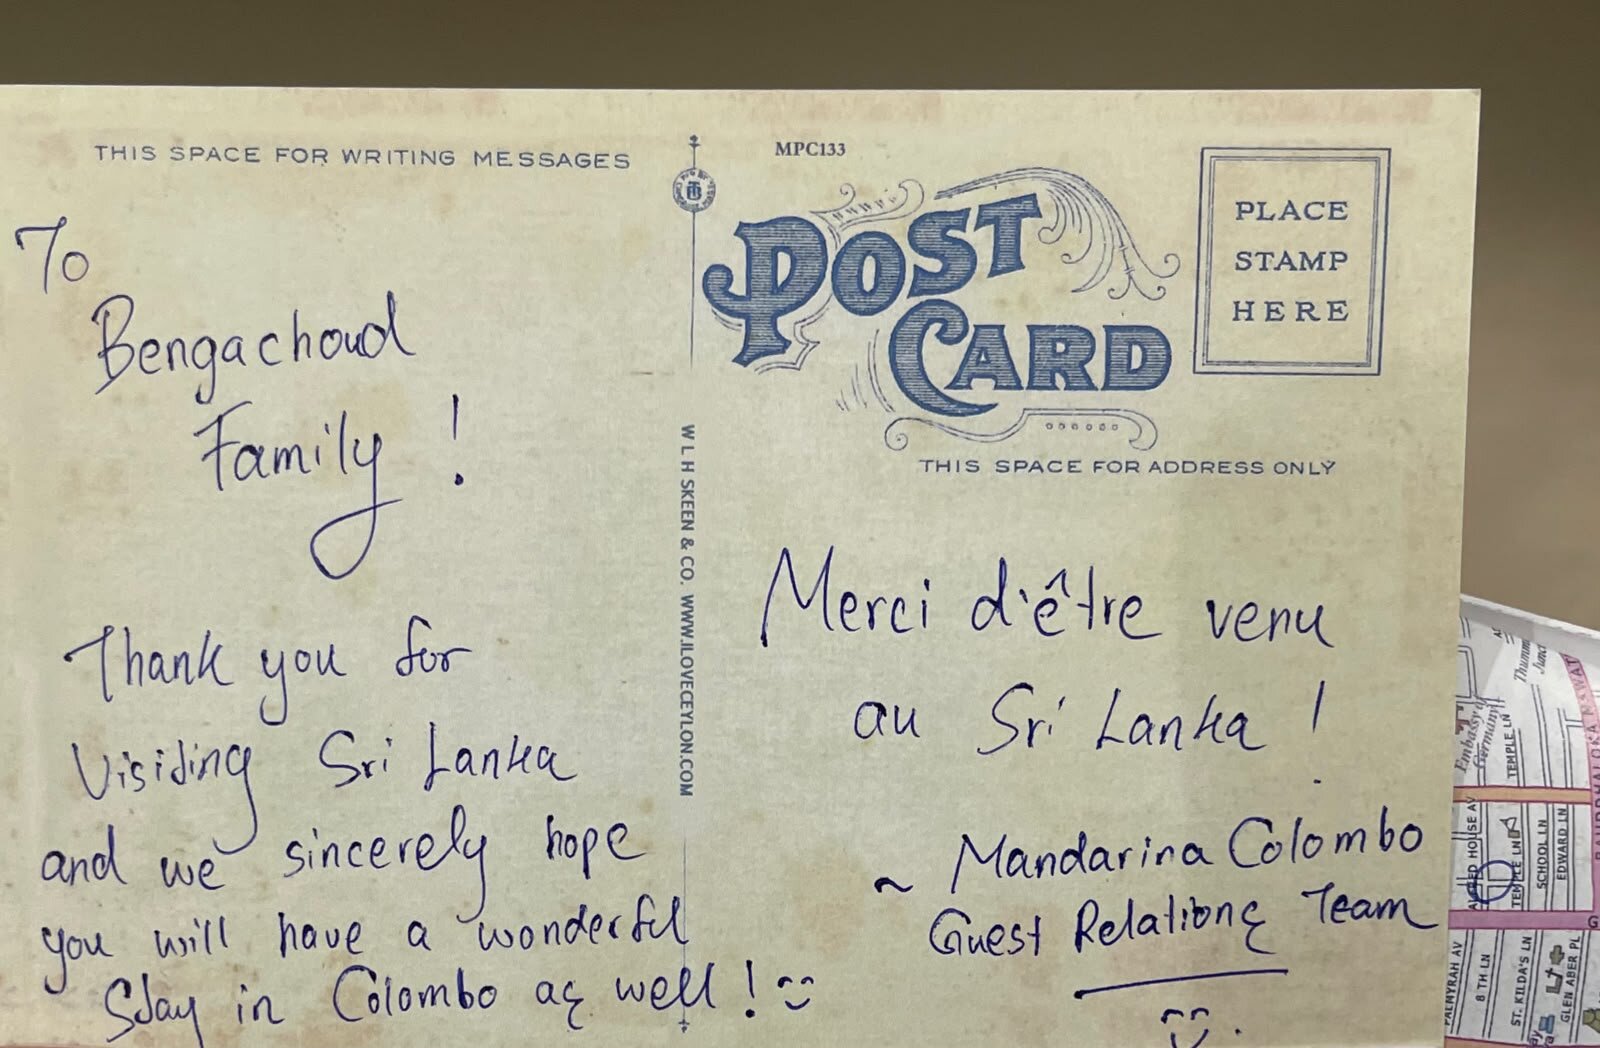 THIS SPACE FOR WRITING MESSAGES
To
Bengachoud
Family !
Thank you for
Visiting Sri Lanka
and we sincerely hope
you will have a wonderful
Stay in Colombo as well !
W L H SKEEN & CO. WWW.ILOVECEYLON.COM
MPC133
POST
CARD
PLACE
STAMP
HERE
THIS SPACE FOR ADDRESS ONLY
Merci d'être venu
au Sri Lanka !
~ Mandarina Colombo
Guest Relations Team
Embassy of
Germany
TEMPLE LN
ALFRED HOUSE AV
TEMPLE LN
SCHOOL LN
EDWARD LN
PALMYRAH AV
8 TH LN
ST. KILDA'S LN
GLEN ABER PL